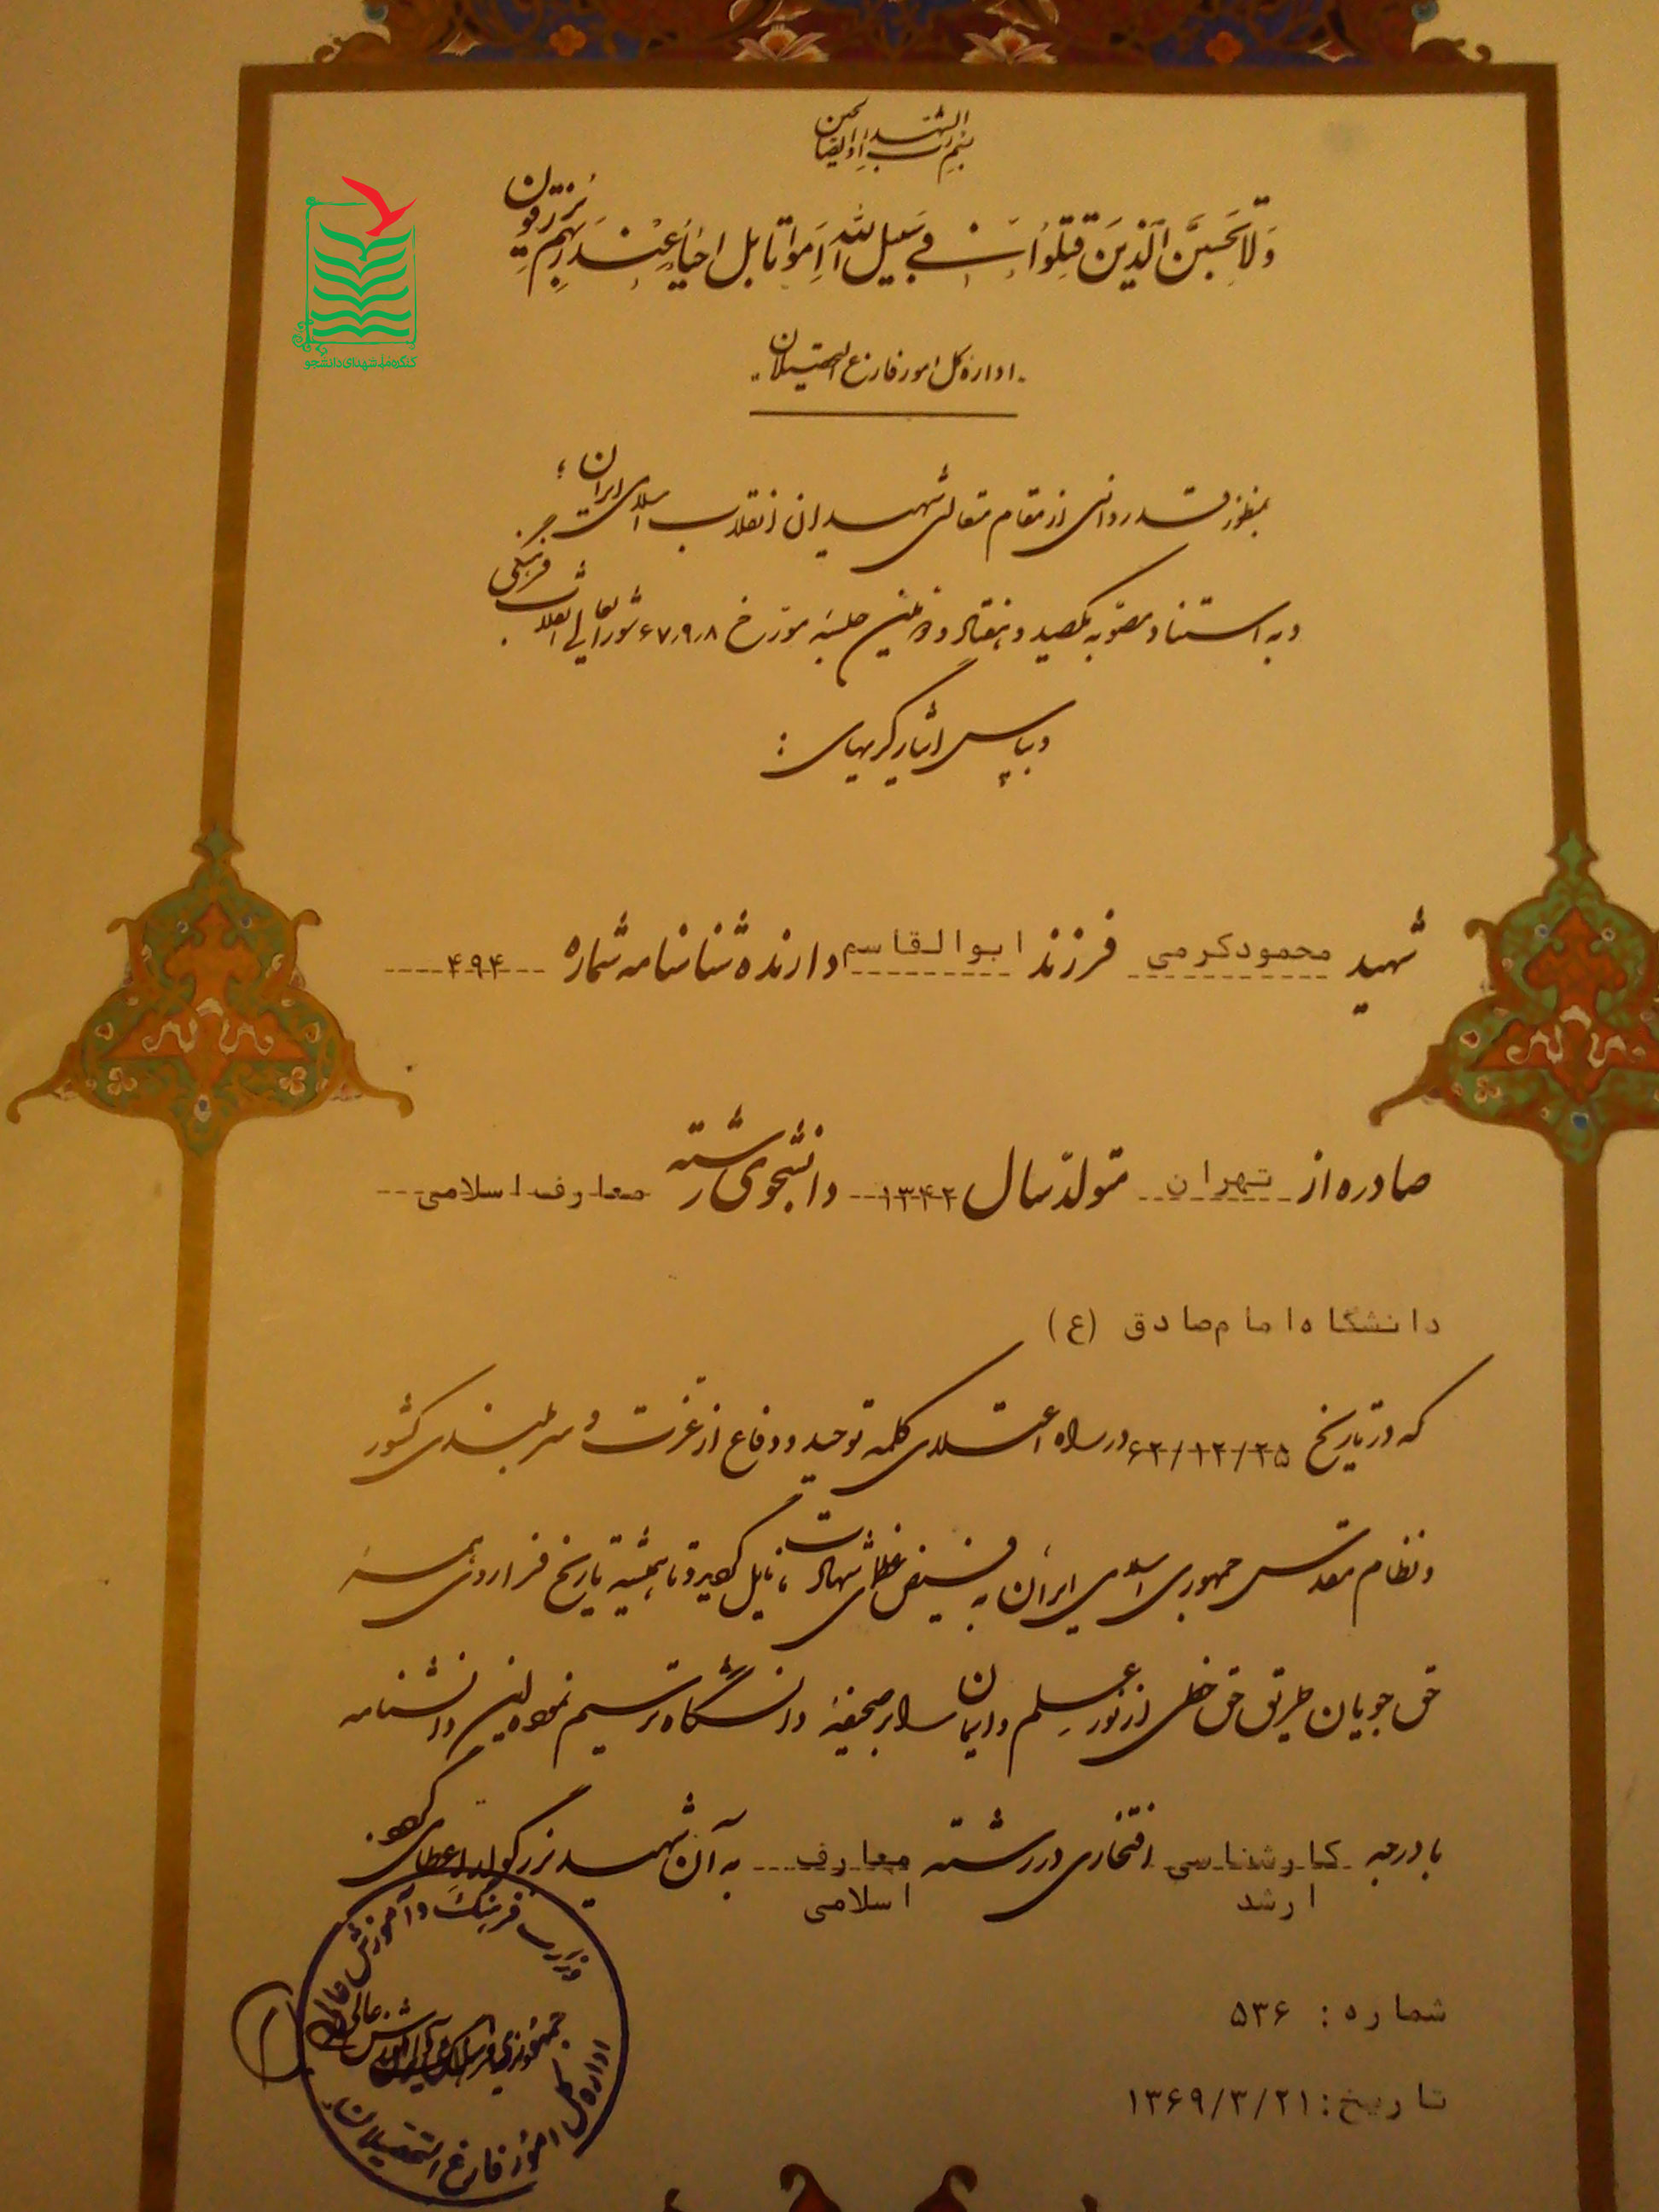 بسم رب الشهداء والصالحین
وَلا تَحْسَبَنَّ الَّذینَ قُتِلُوا فی سَبیلِ اللهِ اَمواتا بل احیاءٌ عِندَ رَبِّهِم یُرزقون
کنگره ملی شهدای دانشجو
اداره کل امور فارغ التحصیلان
بمنظور قدردانی از مقام متعالی شهیدان انقلاب اسلامی ایران ؛
و به استناد مصوبه یکصد و هفتاد و دومین جلسه مورخ ۶۷٫۹٫۸ شورایعالی انقلاب فرهنگی
و بپاس ایثارگریهای :
شهید محمودکرمی فرزند ابوالقاسم دارنده شناسنامه شماره ۴۹۴
صادره از تهران متولد سال ۱۳۴۲ دانشجوی رشته معارف اسلامی
دانشگاه امام صادق (ع)
که در تاریخ ۶۲/۱۲/۲۵ در راه اعتلای کلمه توحید و دفاع از عزت و سربلندی کشور
و نظام مقدس جمهوری اسلامی ایران به فیض عظمای شهادت نایل گردید و تا همیشه تاریخ فرا روی همه
حق جویان طریق حق خطی از نور علم و ایمان را بر صحیفه دانشگاه ترسیم نموده این دانشنامه
با درجه کارشناسی ارشد افتخاری در رشته معارف اسلامی به آن شهید بزرگوار اعطا می گردد.
شماره : ۵۳۶
تاریخ : ۱۳۶۹/۳/۲۱
وزارت فرهنگ و آموزش عالی
جمهوری اسلامی ایران
اداره کل امور فارغ التحصیلان